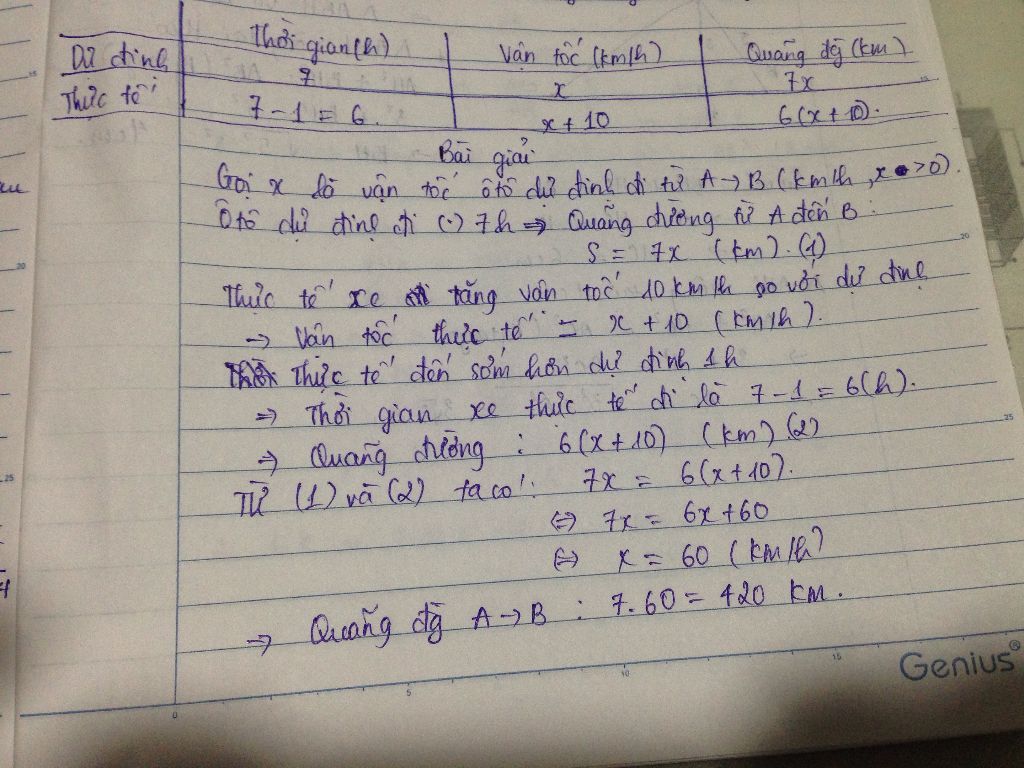 Thời gian (h) Vận tốc (km/h) Quãng đg (km)
Dự định 7 x 7x
Thực tế 7 - 1 = 6. x + 10 6(x + 10).
Bài giải
Gọi x là vận tốc ôtô dự định đi từ A → B (km/h, x > 0).
Ôtô dự định đi (·) 7h ⇒ Quãng đường từ A đến B :
S = 7x (km). (1)
Thực tế xe tăng vận tốc 10 km/h so với dự định
→ Vận tốc thực tế = x + 10 (km/h).
Thực tế đến sớm hơn dự định 1h
⇒ Thời gian xe thực tế đi là 7 - 1 = 6(h).
⇒ Quãng đường : 6(x + 10) (km) (2)
Từ (1) và (2) ta có : 7x = 6(x + 10).
⇔ 7x = 6x + 60
⇔ x = 60 (km/h)
⇒ Quãng đg A → B : 7.60 = 420 km.
Genius®